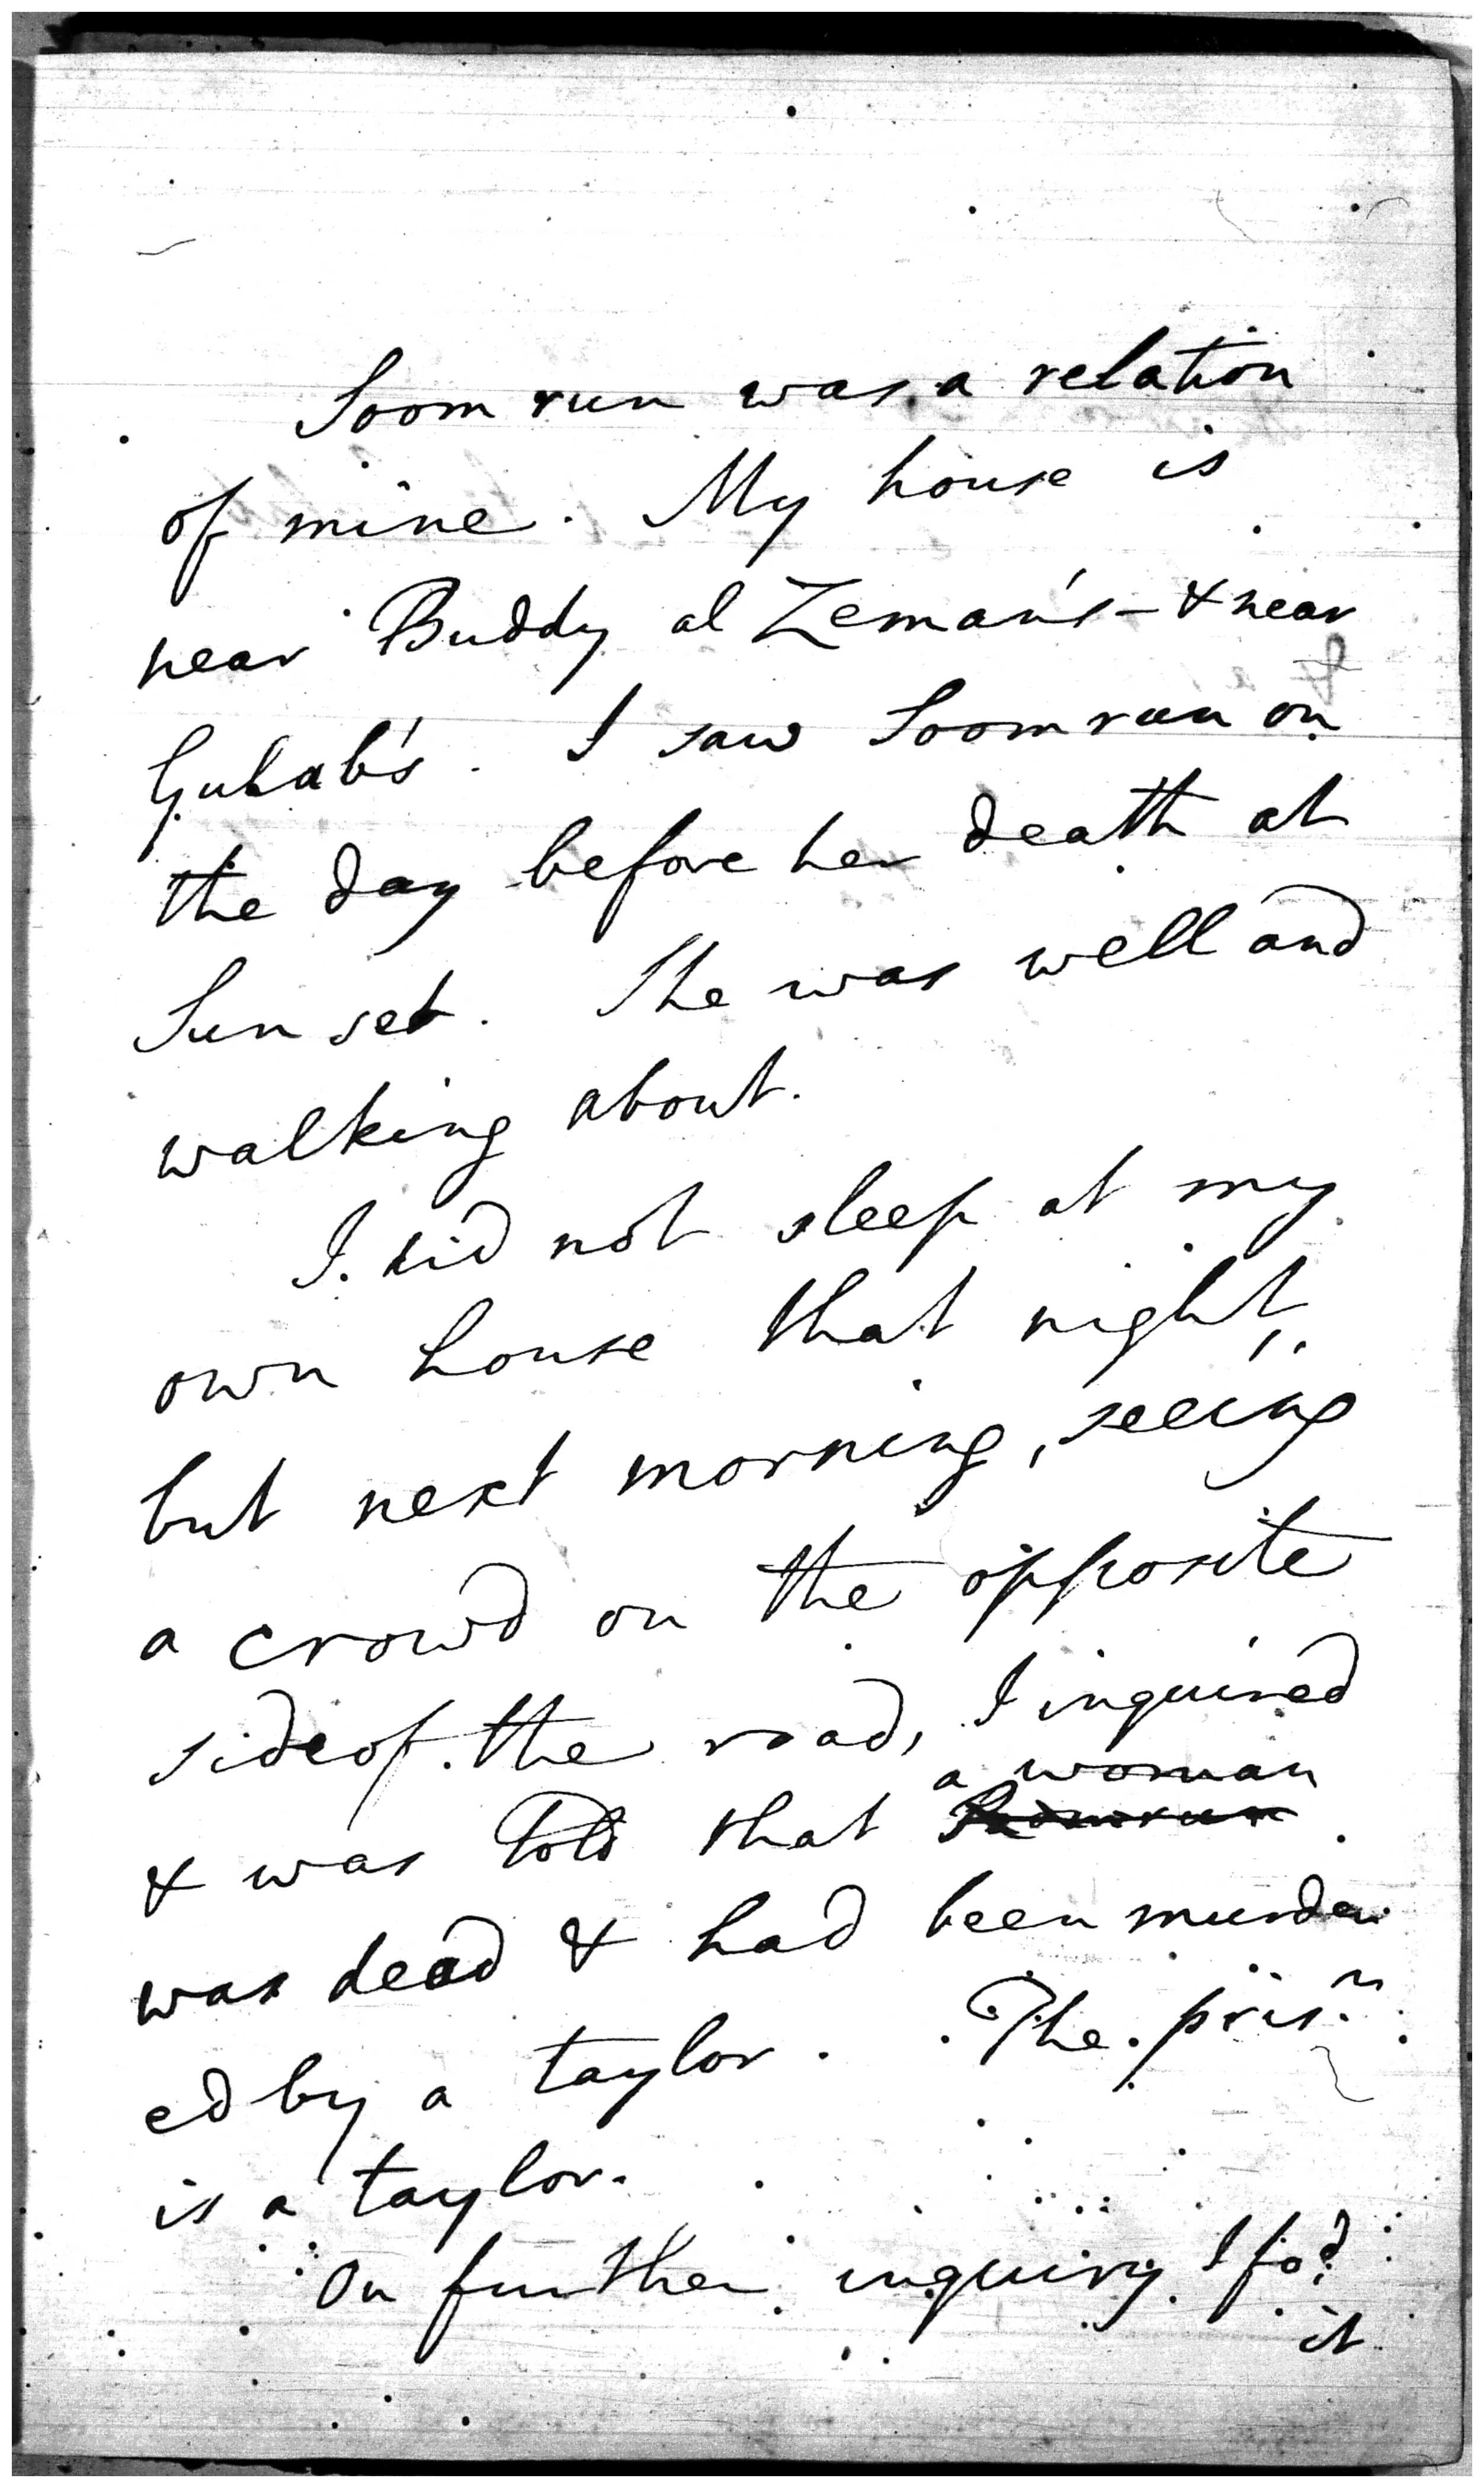 Soomrun was a relation
of mine. My house is
near Buddy al Zeman's - & near
Gulab's. I saw Soomrun on
the day before her death at
Sun set. She was well and
walking about.
I did not sleep at my
own house that night,
but next morning, seeing
a crowd on the opposite
side of the road, I inquired
a woman
& was told that Soomrun
was dead & had been murder
ed by a taylor. The prisr.
is a taylor.
On further inquiry I fod.
it